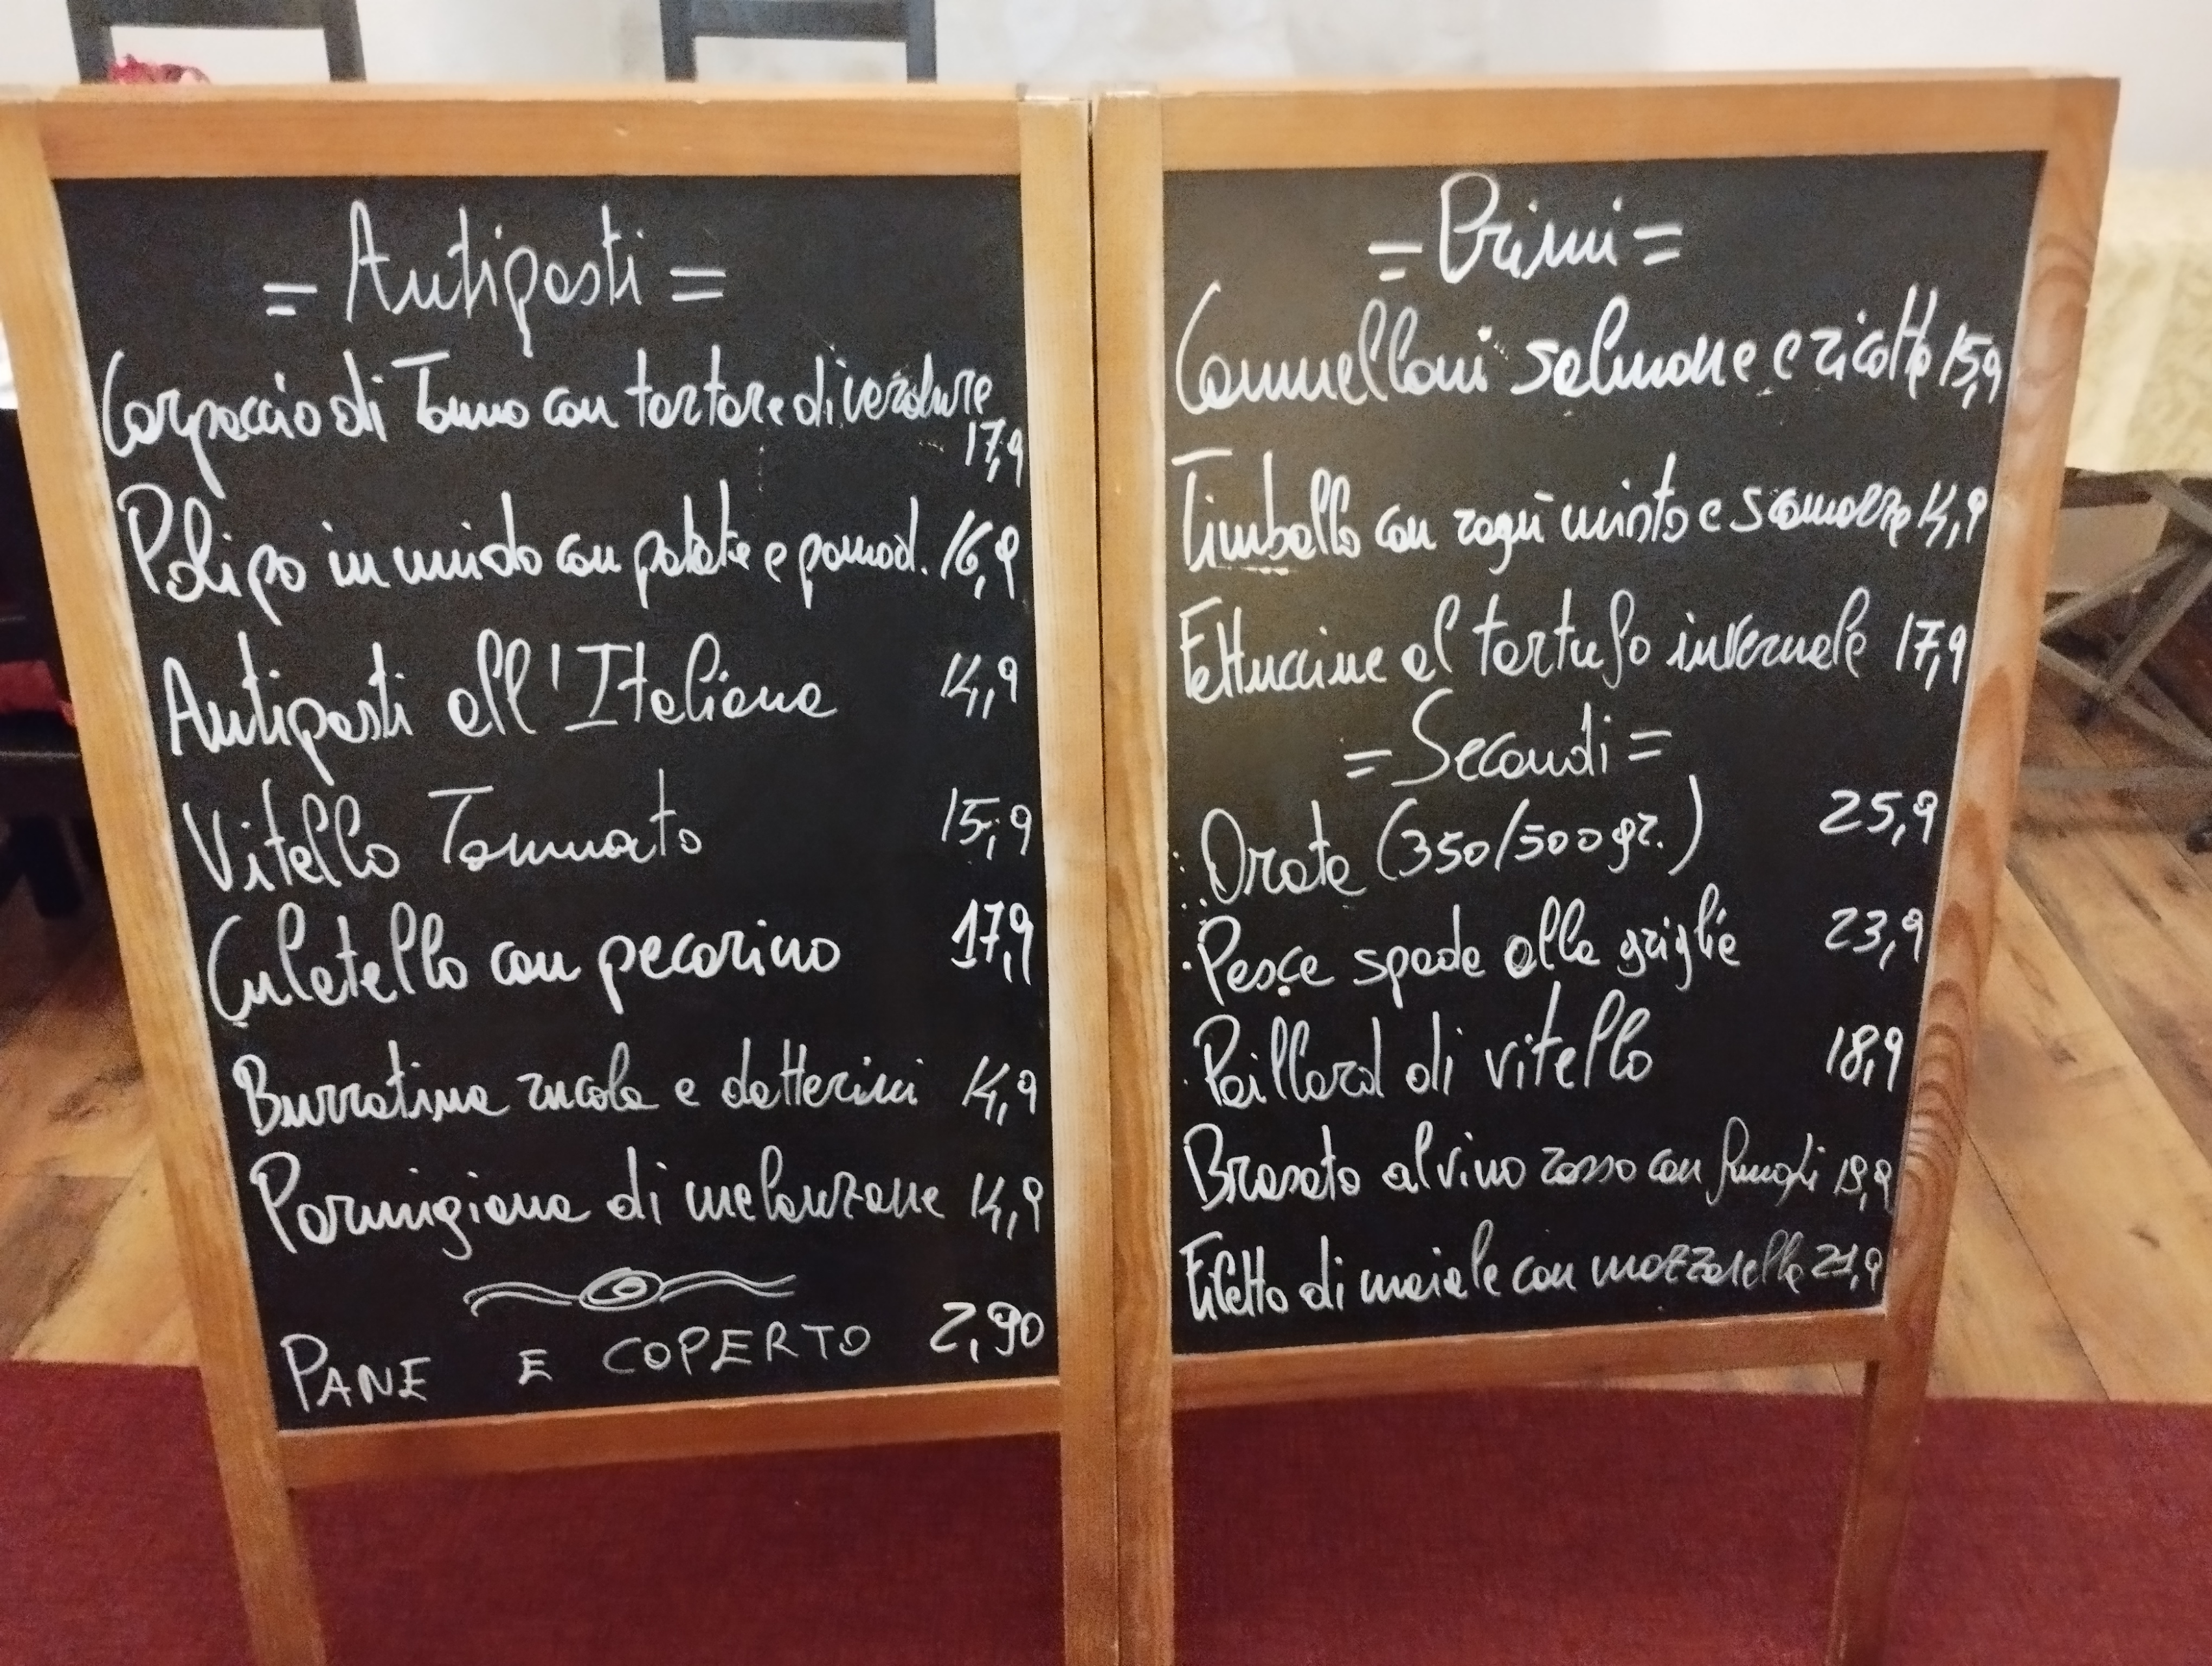 = Antipasti =
Carpaccio di Tonno con tartare di verdure
17,9
Polipo in umido con patate e pomod. 16,9
Antipasti all'Italiana 14,9
Vitello Tonnato 15,9
Culatello con pecorino 17,9
Burratina rucola e datterini 14,9
Parmigiana di melanzane 14,9
PANE E COPERTO 2,90
= Primi =
Cannelloni salmone e ricotta 15,9
Timballo con ragù misto e scamorza 14,9
Fettuccine al tartufo invernale 17,9
= Secondi =
Orata (350/500gr.) 25,9
Pesce spada alla griglia 23,9
Paillard di vitello 18,9
Brasato al vino rosso con funghi 19,9
Filetto di maiale con mozzarella 21,9